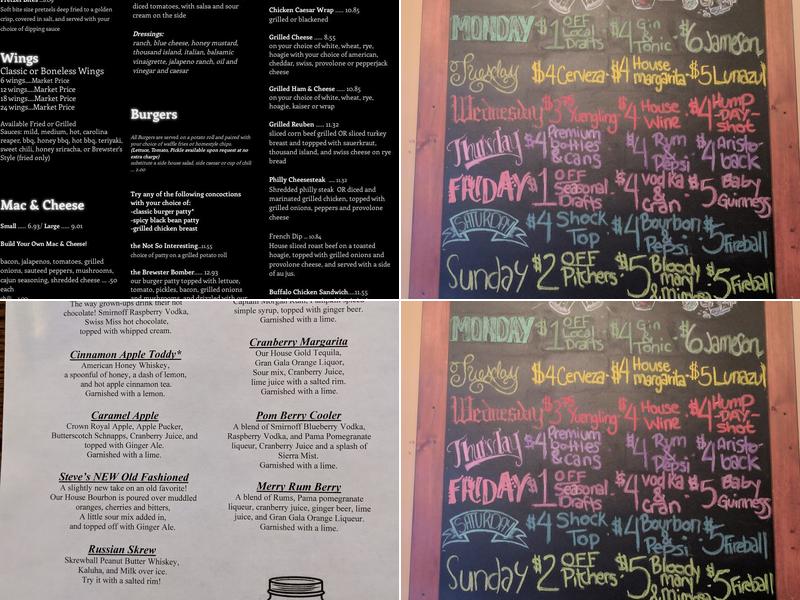 Soft bite size pretzels deep fried to a golden
crisp, covered in salt, and served with your
choice of dipping sauce
Wings
Classic or Boneless Wings
6 wings....Market Price
12 wings....Market Price
18 wings....Market Price
24 wings....Market Price
Available Fried or Grilled
Sauces: mild, medium, hot, carolina
reaper, bbq, honey bbq, hot bbq, teriyaki,
sweet chili, honey sriracha, or Brewster's
Style (fried only)
Mac & Cheese
Small ..... 6.93/ Large ..... 9.01
Build Your Own Mac & Cheese!
bacon, jalapenos, tomatoes, grilled
onions, sauteed peppers, mushrooms,
cajun seasoning, shredded cheese ... .50
each
diced tomatoes, with salsa and sour
cream on the side
Dressings:
ranch, blue cheese, honey mustard,
thousand island, italian, balsamic
vinaigrette, jalapeno ranch, oil and
vinegar and caesar
Burgers
All Burgers are served on a potato roll and paired with
your choice of waffle fries or homestyle chips.
(Lettuce, Tomato, Pickle available upon request at no
extra charge)
substitute a side house salad, side caesar or cup of chili
... 2.00
Try any of the following concoctions
with your choice of:
-classic burger patty*
-spicy black bean patty
-grilled chicken breast
the Not So Interesting..11.55
choice of patty on a grilled potato roll
the Brewster Bomber..... 12.93
our burger patty topped with lettuce,
tomato, pickles, bacon, grilled onions
and mushrooms, and drizzled with our
Chicken Caesar Wrap ..... 10.85
grilled or blackened
Grilled Cheese ..... 8.55
on your choice of white, wheat, rye,
hoagie with your choice of american,
cheddar, swiss, provolone or pepperjack
cheese
Grilled Ham & Cheese ..... 10.85
on your choice of white, wheat, rye,
hoagie, kaiser or wrap
Grilled Reuben ..... 11.32
sliced corn beef grilled OR sliced turkey
breast and toppped with sauerkraut,
thousand island, and swiss cheese on rye
bread
Philly Cheesesteak ..... 11.32
Shredded philly steak OR diced and
marinated grilled chicken, topped with
grilled onions, peppers and provolone
cheese
French Dip ... 10.84
House sliced roast beef on a toasted
hoagie, topped with grilled onions and
provolone cheese, and served with a side
of au jus.
Buffalo Chicken Sandwich....11.55
MONDAY $1 OFF Local Drafts $4 Gin & Tonic $6 Jameson
Tuesday $4 Cerveza $4 House margarita $5 Lunazul
Wednesday $3.75 Yuengling $4 House Wine $4 Hump -DAY- shot
Thursday $4 Premium bottles & cans $4 Rum & Pepsi $4 Aristo back
FRIDAY $1 OFF Seasonal Drafts $4 vodka & cran $5 Baby Guinness
SATURDAY $4 Shock Top $4 Bourbon & Pepsi $5 Fireball
Sunday $2 OFF Pitchers $5 Bloody mary $5 Fireball
The way grown-ups drink their hot
chocolate! Smirnoff Raspberry Vodka,
Swiss Miss hot chocolate,
topped with whipped cream.
Cinnamon Apple Toddy*
American Honey Whiskey,
a spoonful of honey, a dash of lemon,
and hot apple cinnamon tea.
Garnished with a lemon.
Caramel Apple
Crown Royal Apple, Apple Pucker,
Butterscotch Schnapps, Cranberry Juice, and
topped with Ginger Ale.
Garnished with a lime.
Steve's NEW Old Fashioned
A slightly new take on an old favorite!
Our House Bourbon is poured over muddled
oranges, cherries and bitters,
A little sour mix added in,
and topped off with Ginger Ale.
Russian Skrew
Skrewball Peanut Butter Whiskey,
Kaluha, and Milk over ice.
Try it with a salted rim!
simple syrup, topped with ginger beer.
Garnished with a lime.
Cranberry Margarita
Our House Gold Tequila,
Gran Gala Orange Liquor,
Sour mix, Cranberry Juice,
lime juice with a salted rim.
Garnished with a lime.
Pom Berry Cooler
A blend of Smirnoff Blueberry Vodka,
Raspberry Vodka, and Pama Pomegranate
liqueur, Cranberry Juice and a splash of
Sierra Mist.
Garnished with a lime.
Merry Rum Berry
A blend of Rums, Pama pomegranate
liqueur, cranberry juice, ginger beer, lime
juice, and Gran Gala Orange Liqueur.
Garnished with a lime.
MONDAY $1 OFF Local Drafts $4 Gin & Tonic $6 Jameson
Tuesday $4 Cerveza $4 House margarita $5 Lunazul
Wednesday $3.75 Yuengling $4 House Wine $4 Hump -DAY- shot
Thursday $4 Premium bottles & cans $4 Rum & Pepsi $4 Aristo back
FRIDAY $1 OFF Seasonal Drafts $4 vodka & cran $5 Baby Guinness
SATURDAY $4 Shock Top $4 Bourbon & Pepsi $5 Fireball
Sunday $2 OFF Pitchers $5 Bloody mary $5 Fireball